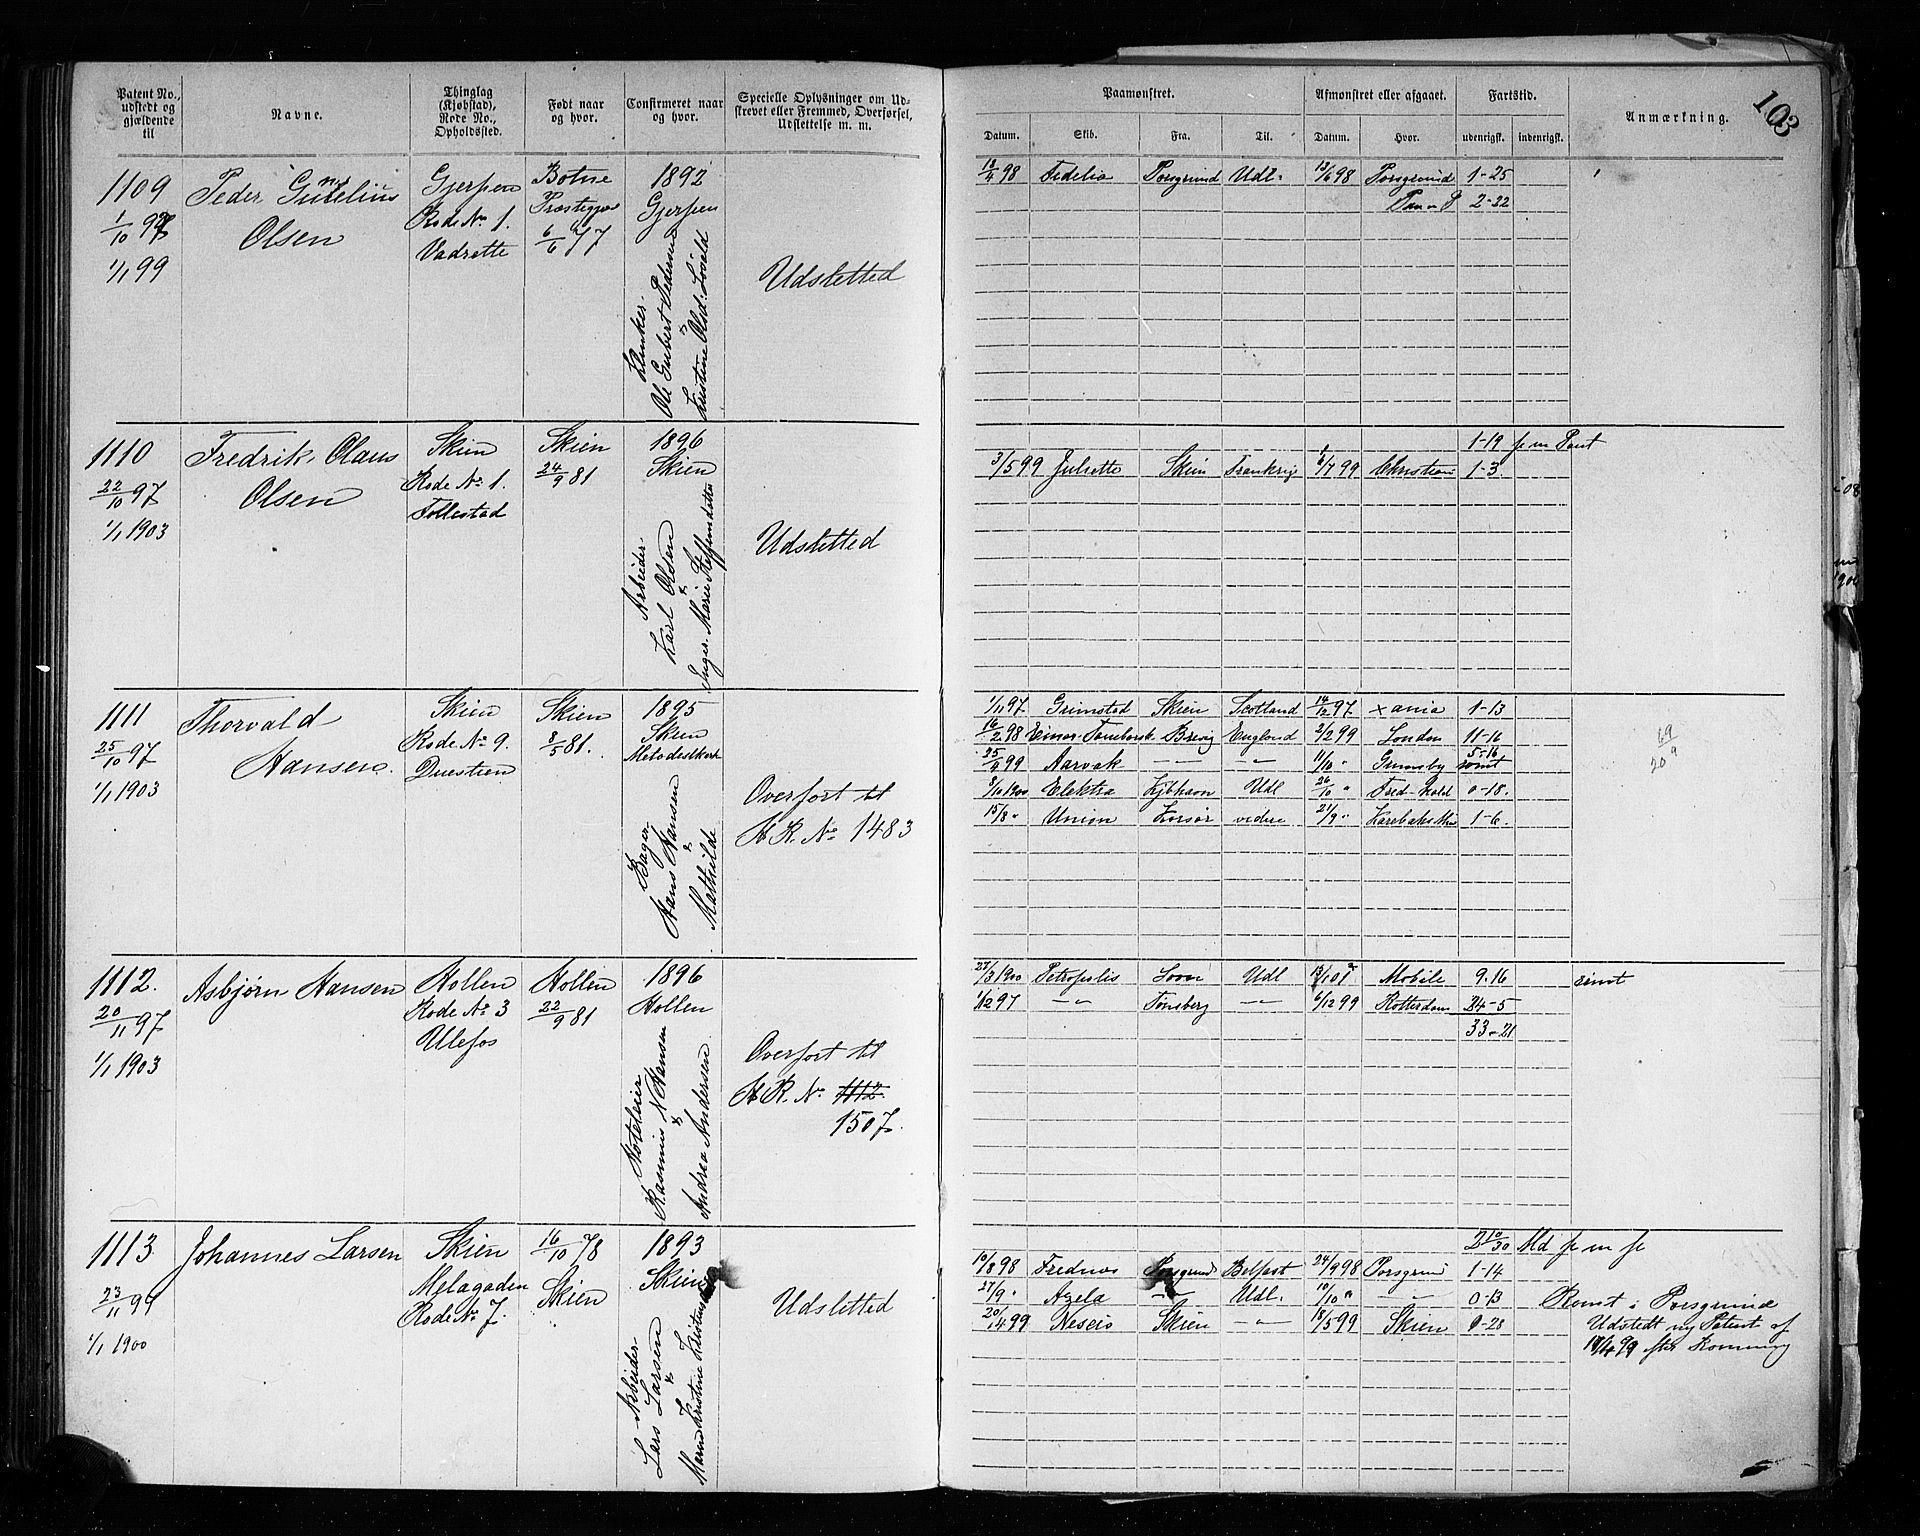 103
Patent No., udstedt og gjældende til
Navne.
Thinglag (Kjøbstad), Rode No., Opholdssted.
Født naar og hvor.
Confirmeret naar og hvor.
Specielle Oplysninger om Udskrevet eller Fremmed, Overførsel, Udslettelse m. m.
Paamønstret.
Afmønstret eller afgaaet.
Fartstid.
Anmærkning.
Datum. Skib. Fra. Til. Datum. Hvor. udenrigst. indenrigst.
1109
1/10 97
1/1 99
Peder
Olsen
Gjerpen
Rode No 1.
Vadrette
Botne
6/6 77
1892
Gjerpen
Ole Gubert Pedersen
&
Kristine Olsd. Løveld
Udsletted
13/4 98 Fidelia Porsgrund Udl. 12/6 98 Porsgrund 1-25
2-22
1110
22/10 97
1/1 1903
Fredrik Olaus
Olsen
Skien
Rode No 1.
Follestad
Skien
24/9 81
1896
Skien
Arbeider
Karl Olsen
&
Inger Marie Steffensdatter
Udsletted
1-19
3/5 99 Juliette Skien Frankrig 6/7 99 Christiania 1-3
1111
25/10 97
1/1 1903
Thorvald
Hansen
Skien
Rode No 9.
Duestien
Skien
8/5 81.
1895
Skien
Metodistkirk
Bager
Hans Hansen
&
Mathilde
Overført til
H. R. No 1483
1/11 97 Grimstad Skien Scotland 14/12 97 Xania 1-13
16/2 98 Einar Tambarsk. Brevig England 2/2 99 London 11-16
25/4 99 Aarvak —"— —"— 11/10 " Grimsby 5-16
8/10 1900 Elektra Kjbhavn Udl 26/10 " Fred-hald 0-18.
15/8 " Union Korsør videre 21/9 " 1-6.
1112.
20/11 97
1/1 1903
Asbjørn Hansen
Hollen
Rode No 3
Ulefos
Hollen
22/9 81
1896
Hollen
Hoteleier
Rasmus N Hansen
&
Andrea Andersen
Overført til
H. R. No 1112
1507.
27/3 1900 Petropolis Udl Mobile 9.16
1/12 97 —"— Tønsberg —"— 6/12 99 Rotterdam 24-5
33-21
1113
23/11 99
1/1 1900
Johannes Larsen
Skien
Mælagaden
Rode No 7.
16/10 78
Skien
1893
Skien
Arbeider
Lars Larsen
&
Udsletted
10/8 98 Frednæs Porsgrund Belfast 24/9 98 Porsgrund 1-14
27/9 " Azela —"— Udl. 10/10 " —"— 0-13 Romt i Porsgrund
20/4 99 Nescio Skien —"— 18/5 99 Skien 0-28 Udstedt ny Patent af